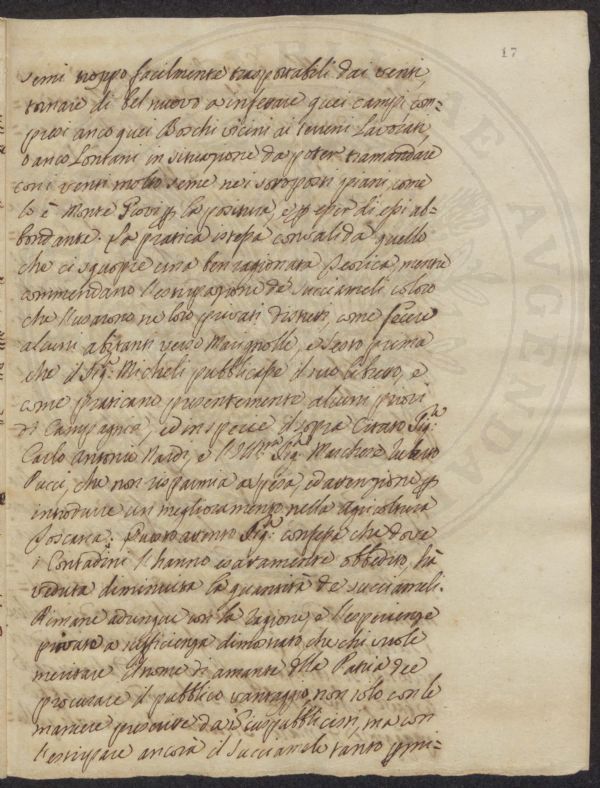 17
semi troppo facilmente trasportabili dai venti,
tornare di bel nuovo a infestare quei campi com=
presi anco quei Boschi vicini ai terreni Lavorati,
o anco Lontani in situazione da poter tramandare
con i venti molto seme ne i sottoposti piani, come
lo è Monte la positura, e di essi ab=
bondante. La pratica istessa convalida quello
che ci scuopre una ben ragionata Teorica, mentre
commendano l'estirpazione de Succiameli coloro
che l'usarono ne loro privati distretti, come fecero
alcuni abitanti verso Marignolle, e Sesto prima
che il Sig.r Micheli pubblicasse il suo Libretto, e
come praticano presentemente alcuni
di Campagna, ed in specie il sopra Citato Sig.r
Carlo Antonio Nardi, e l'Ill.mo Sig.r Marchese
Pucci, che non risparmia a spesa, ed attenzione p
introdurre un miglioramento nella agricoltura
Toscana. Questo attento Sig.r confessa che dove
i Contadini l'hanno esattamente obbedito, ha
veduta diminuita la quantità de succiameli.
Rimane adunque con la ragione, e l'esperienze
provato a sufficienza dimostrato che chi vuole
meritare il nome di amante della Patria dee
procurare il pubblico vantaggio non solo con le
maniere prescritte da, ma con
l'estirpare ancora il Succiamele tanto
AUGENDAE